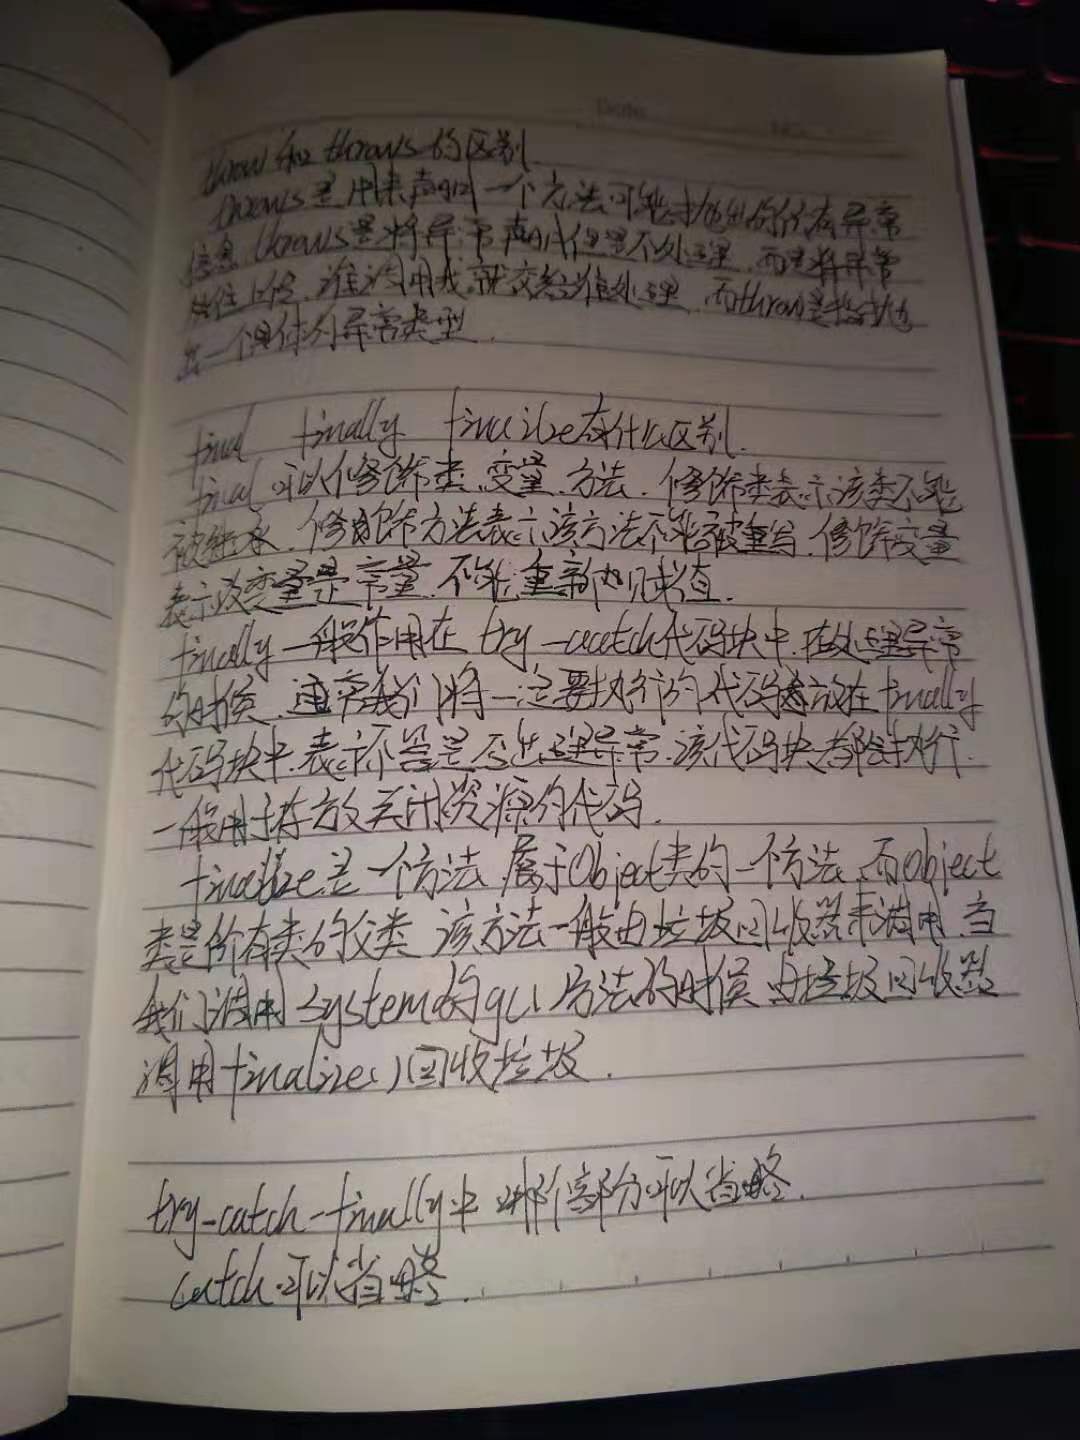 Date
No.
throw和throws的区别.
throws是用来声明一个方法可能抛出的所有异常
信息 throws是将异常声明但是不处理,而是将异常
往上传,谁调用我就交给谁处理.而throw是指抛
出一个具体的异常类型.
final finally finalize有什么区别.
final可以修饰类,变量,方法.修饰类表示该类不能
被继承.修饰方法表示该方法不能被重写.修饰变量
表示该变量是常量,不能重新赋值.
finally一般作用在try-catch代码块中,在处理异常
的时候,通常我们将一定要执行的代码放在finally
代码块中,表示不管是否出现异常,该代码块都会执行.
一般用于存放关闭资源的代码.
finalize是一个方法,属于Object类的一个方法,而Object
类是所有类的父类 该方法一般由垃圾回收器来调用,当
我们调用System的gc()方法的时候 由垃圾回收器
调用finalize()回收垃圾.
try-catch-finally中哪个部分可以省略.
catch可以省略.